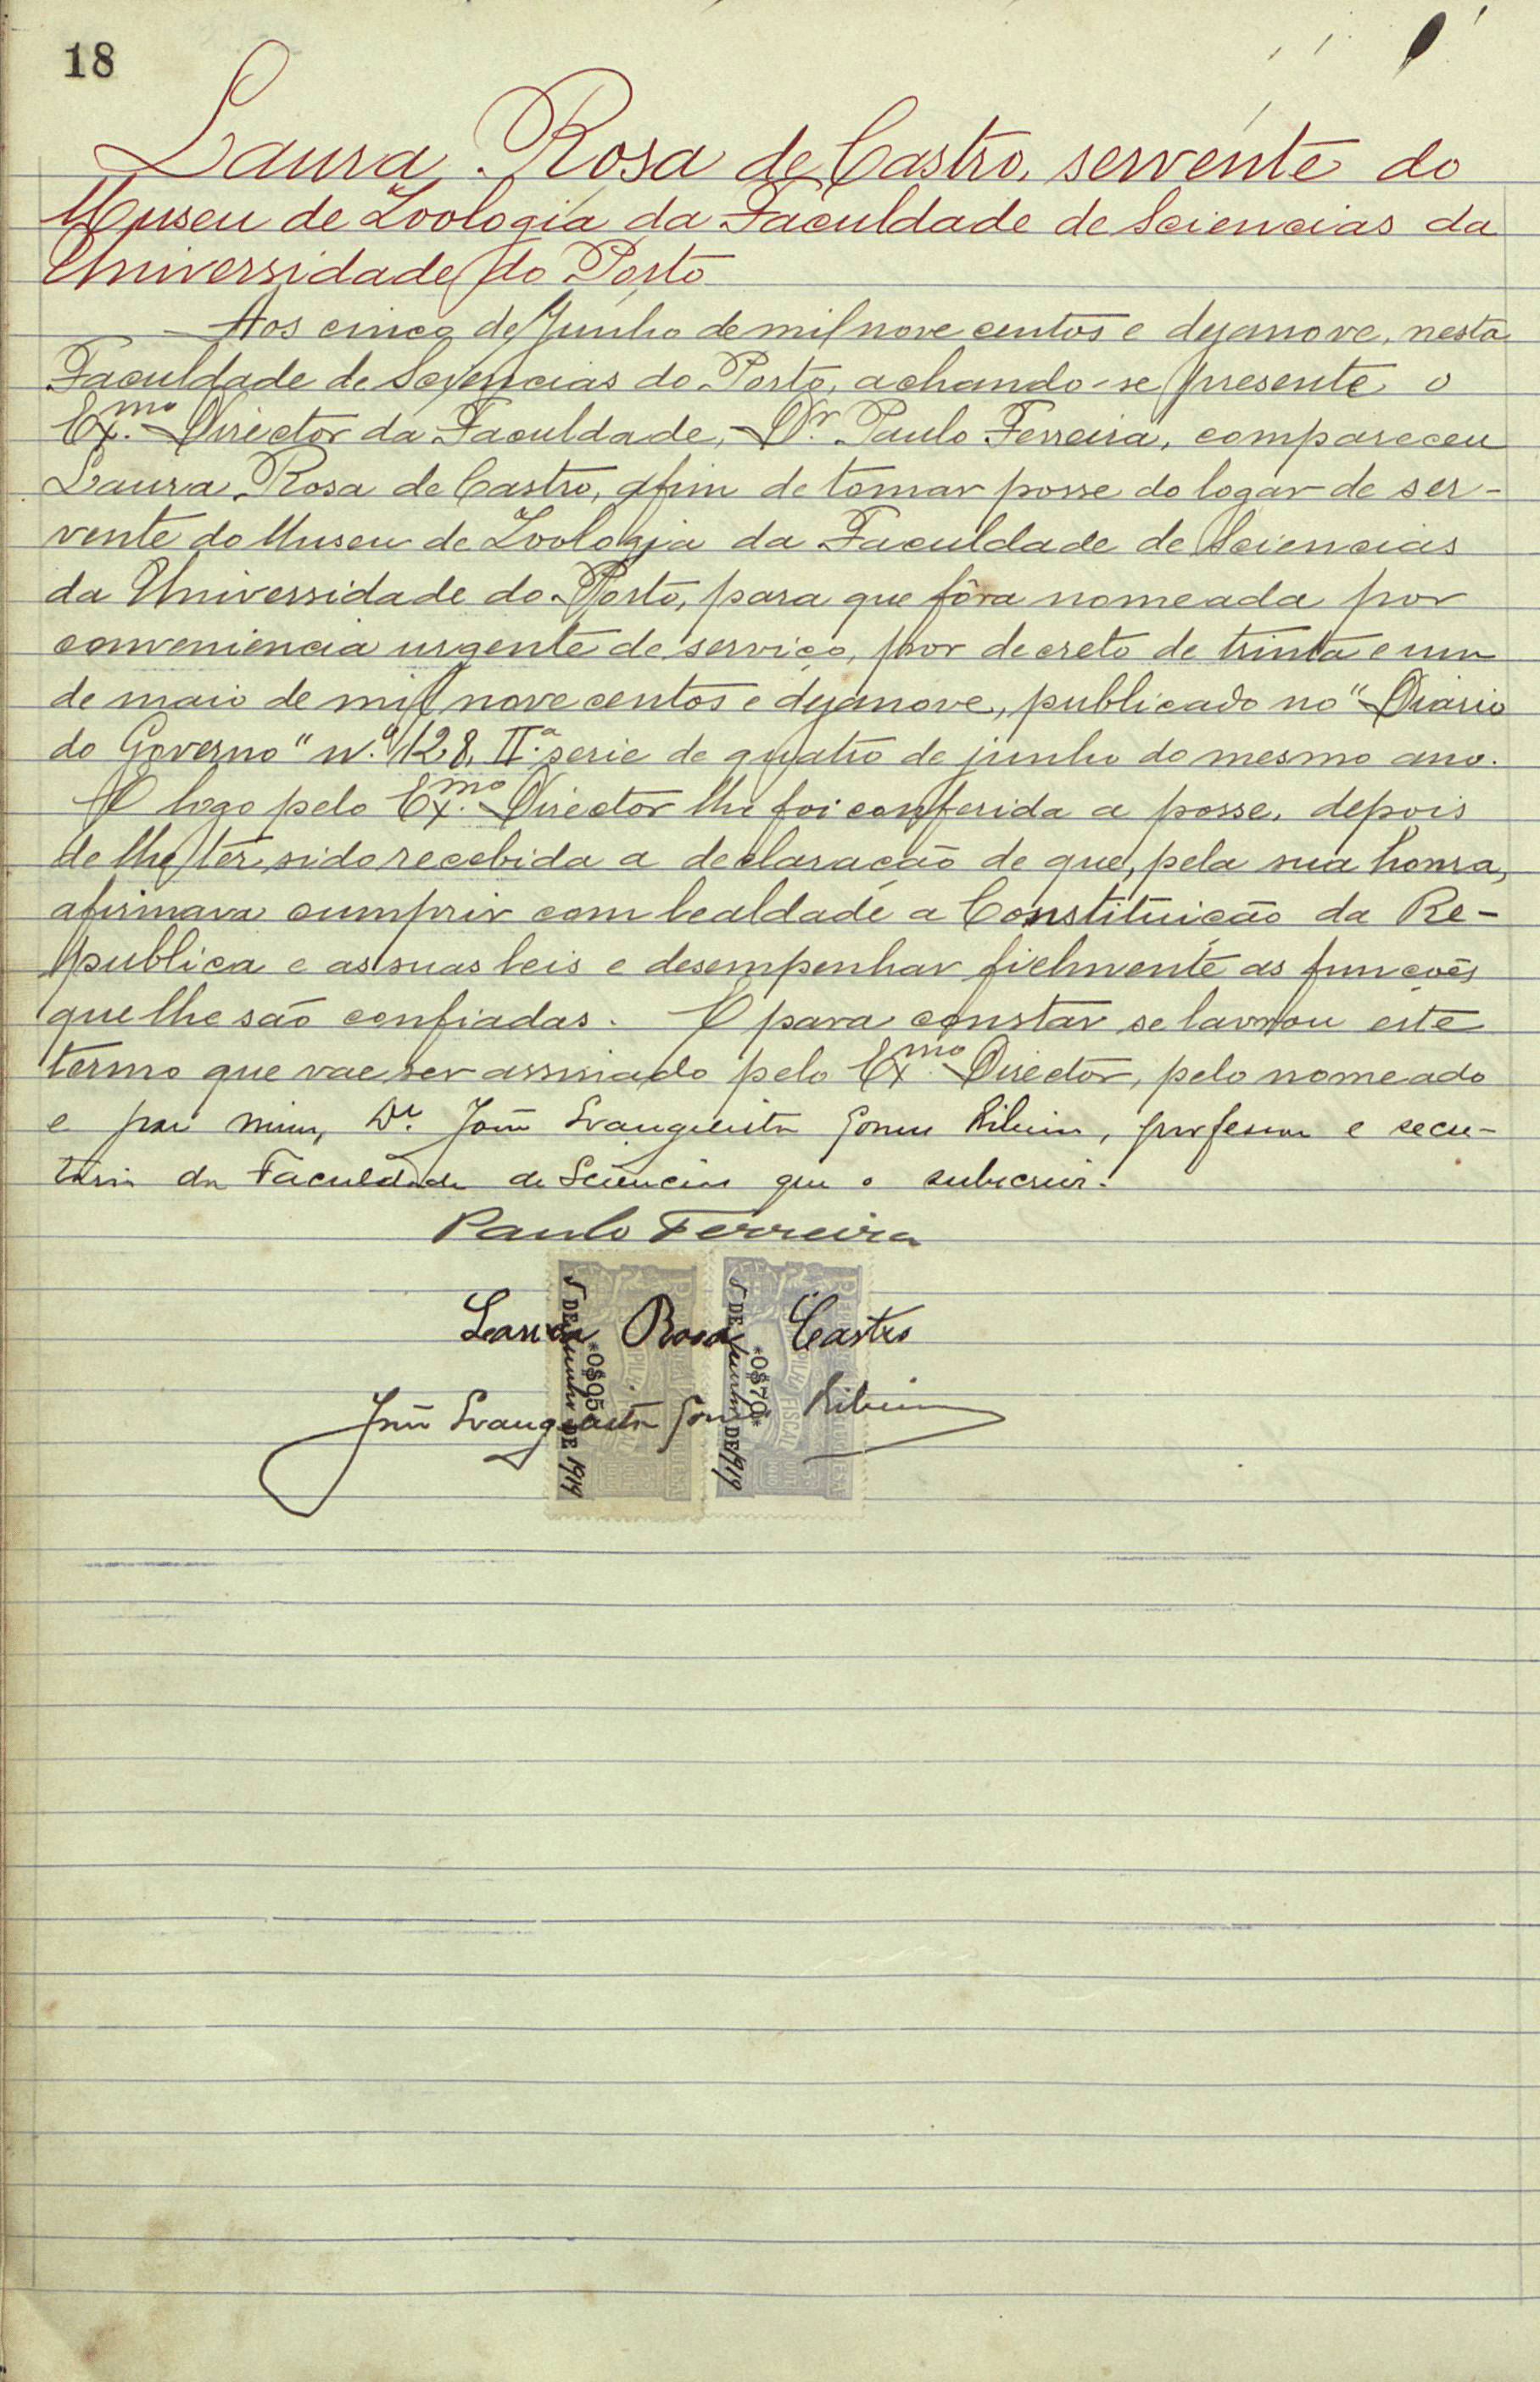 18
Laura Rosa de Castro, servente do
Museu de Zoologia da Faculdade de Sciencias da
Universidade do Porto
Aos cinco de Junho de mil nove centos e dezanove, nesta
Faculdade de Sciencias do Porto, achando-se presente o
Ex.mo Director da Faculdade, Dr. Paulo Ferreira, compareceu
Laura Rosa de Castro, afim de tomar posse do logar de ser-
vente do Museu de Zoologia da Faculdade de Sciencias
da Universidade do Porto, para que fôra nomeada por
conveniencia urgente de serviço, por decreto de trinta e um
de maio de mil nove centos e dezanove, publicado no "Diario
do Governo" n.º 128, II.ª serie de quatro de junho do mesmo ano.
E logo pelo Ex.mo Director lhe foi conferida a posse, depois
de lhe ter sido recebida a declaração de que, pela sua honra,
afirmava cumprir com lealdade a Constituição da Re-
publica e as suas leis e desempenhar fielmente as funcções
que lhe são confiadas. E para constar se lavrou este
termo que vae ser assinado pelo Ex.mo Director, pelo nomeado
e por mim, Dr. João Evangelista Gomes Ribeiro, professor e secre-
tario da Faculdade de Sciencias que o subscrevi.
Paulo Ferreira
Laura Rosa Castro
João Evangelista Gomes Ribeiro
5 DE Junho DE 1919
*0$05*
5 DE Junho DE 1919
*0$70*
FISCAL